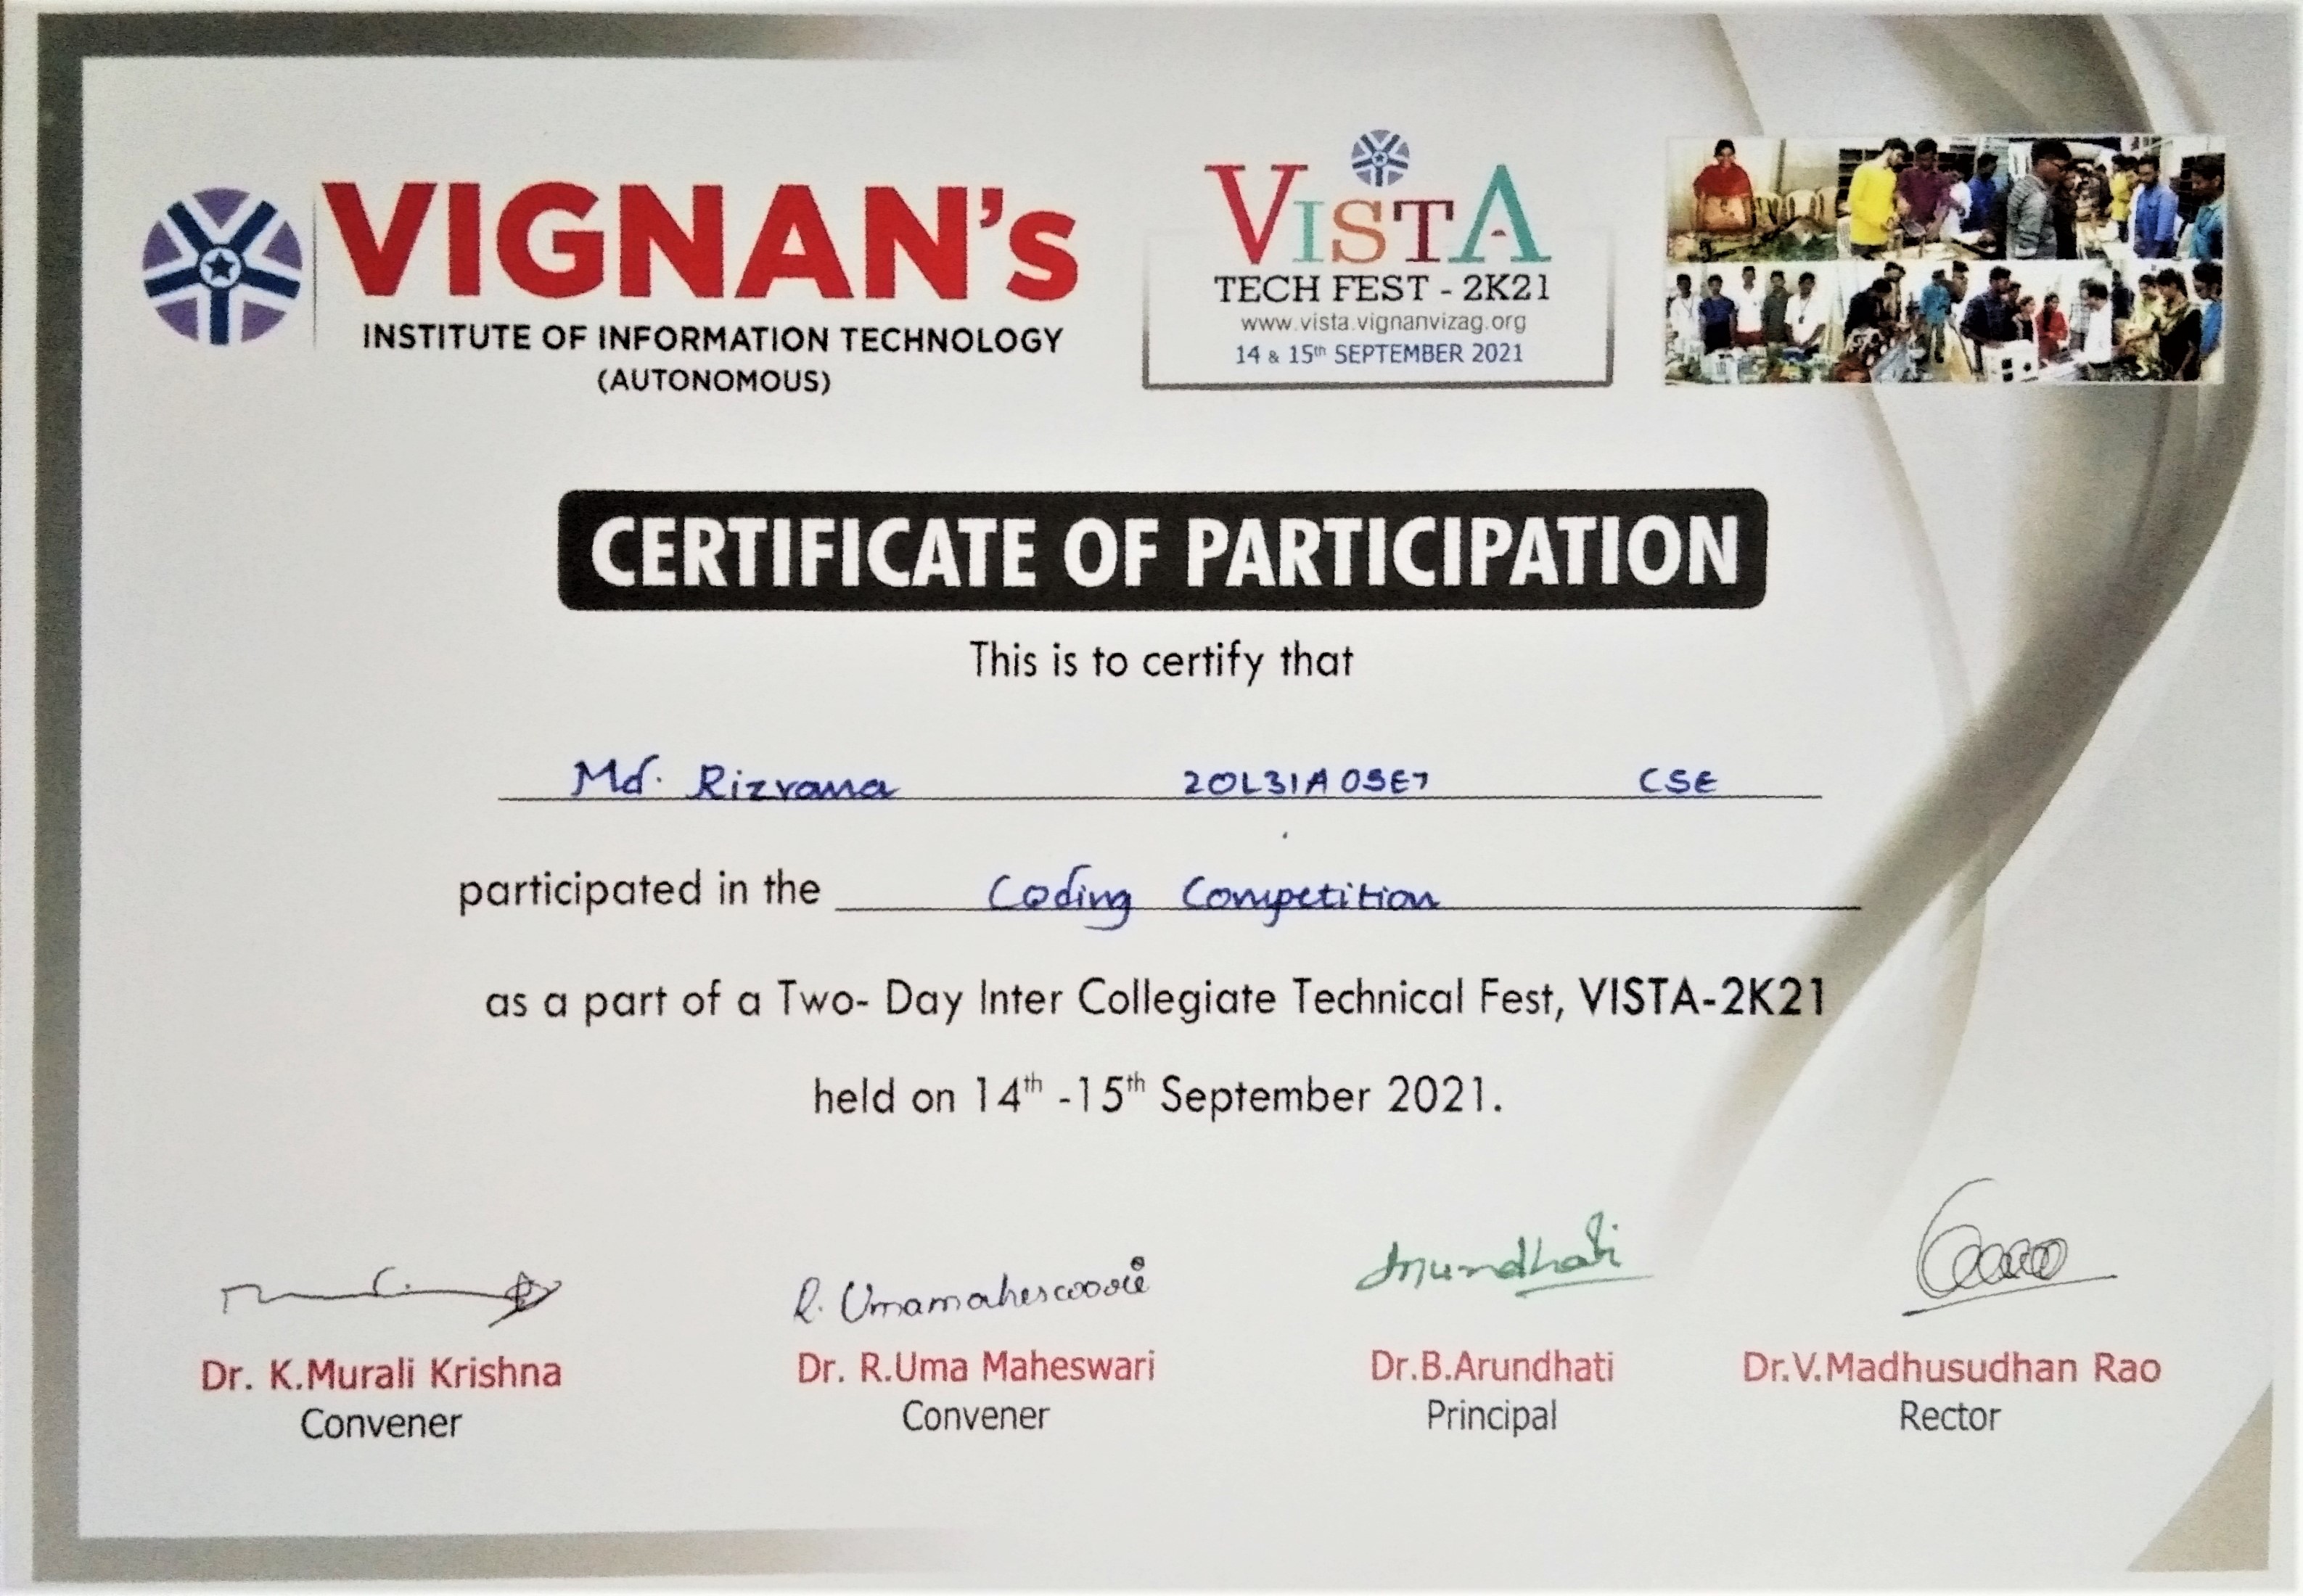 VIGNAN's
INSTITUTE OF INFORMATION TECHNOLOGY
(AUTONOMOUS)
VISTA
TECH FEST - 2K21
www.vista.vignanvizag.org
14 & 15th SEPTEMBER 2021
CERTIFICATE OF PARTICIPATION
This is to certify that
Md. Rizvana 20L31A05E7 CSE
participated in the Coding Competition
as a part of a Two- Day Inter Collegiate Technical Fest, VISTA-2K21
held on 14th -15th September 2021.
R. Umamaheswari Arundhati
Dr. K.Murali Krishna Dr. R.Uma Maheswari Dr.B.Arundhati Dr.V.Madhusudhan Rao
Convener Convener Principal Rector